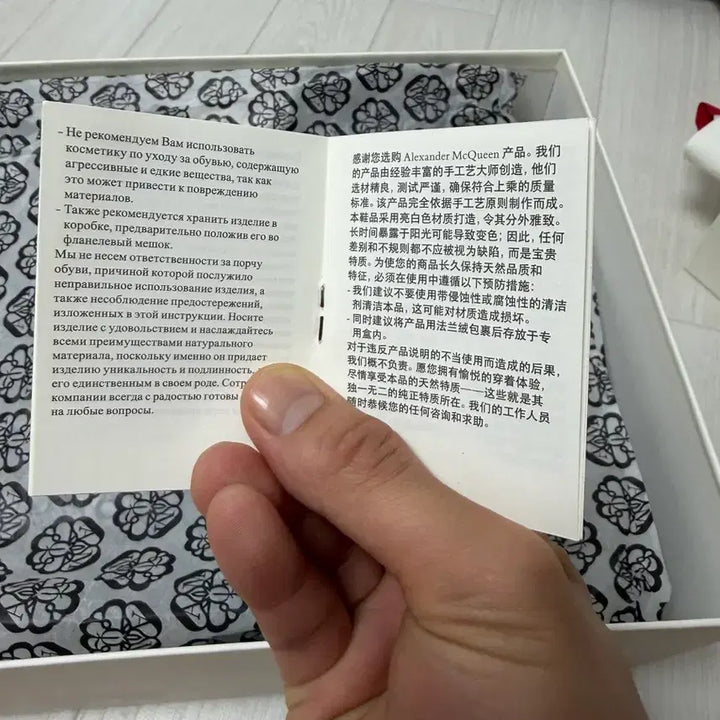 – Не рекомендуем Вам использовать
косметику по уходу за обувью, содержащую
агрессивные и едкие вещества, так как
это может привести к повреждению
материалов.
– Также рекомендуется хранить изделие в
коробке, предварительно положив его во
фланелевый мешок.
Мы не несем ответственности за порчу
обуви, причиной которой послужило
неправильное использование изделия, а
также несоблюдение предостережений,
изложенных в этой инструкции. Носите
изделие с удовольствием и наслаждайтесь
всеми преимуществами натурального
материала, поскольку именно он придает
изделию уникальность и подлинность,
его единственным в своем роде.
компании всегда с радостью готовы
на любые вопросы.
感谢您选购 Alexander McQueen 产品。我们
的产品由经验丰富的手工艺大师创造，他们
选材精良，测试严谨，确保符合上乘的质量
标准。该产品完全依据手工艺原则制作而成。
本鞋品采用亮白色材质打造，令其分外雅致。
长时间暴露于阳光可能导致变色；因此，任何
差别和不规则都不应被视为缺陷，而是宝贵
特质。为使您的商品长久保持天然品质和
特征，必须在使用中遵循以下预防措施：
- 我们建议不要使用带侵蚀性或腐蚀性的清洁
剂清洁本品，这可能对材质造成损坏。
- 同时建议将产品用法兰绒包裹后存放于专
用盒内。
对于违反产品说明的不当使用而造成的后果，
我们概不负责。愿您拥有愉悦的穿着体验，
尽情享受本品的天然特质——这些就是其
独一无二的纯正特质所在。我们的工作人员
随时恭候您的任何咨询和求助。